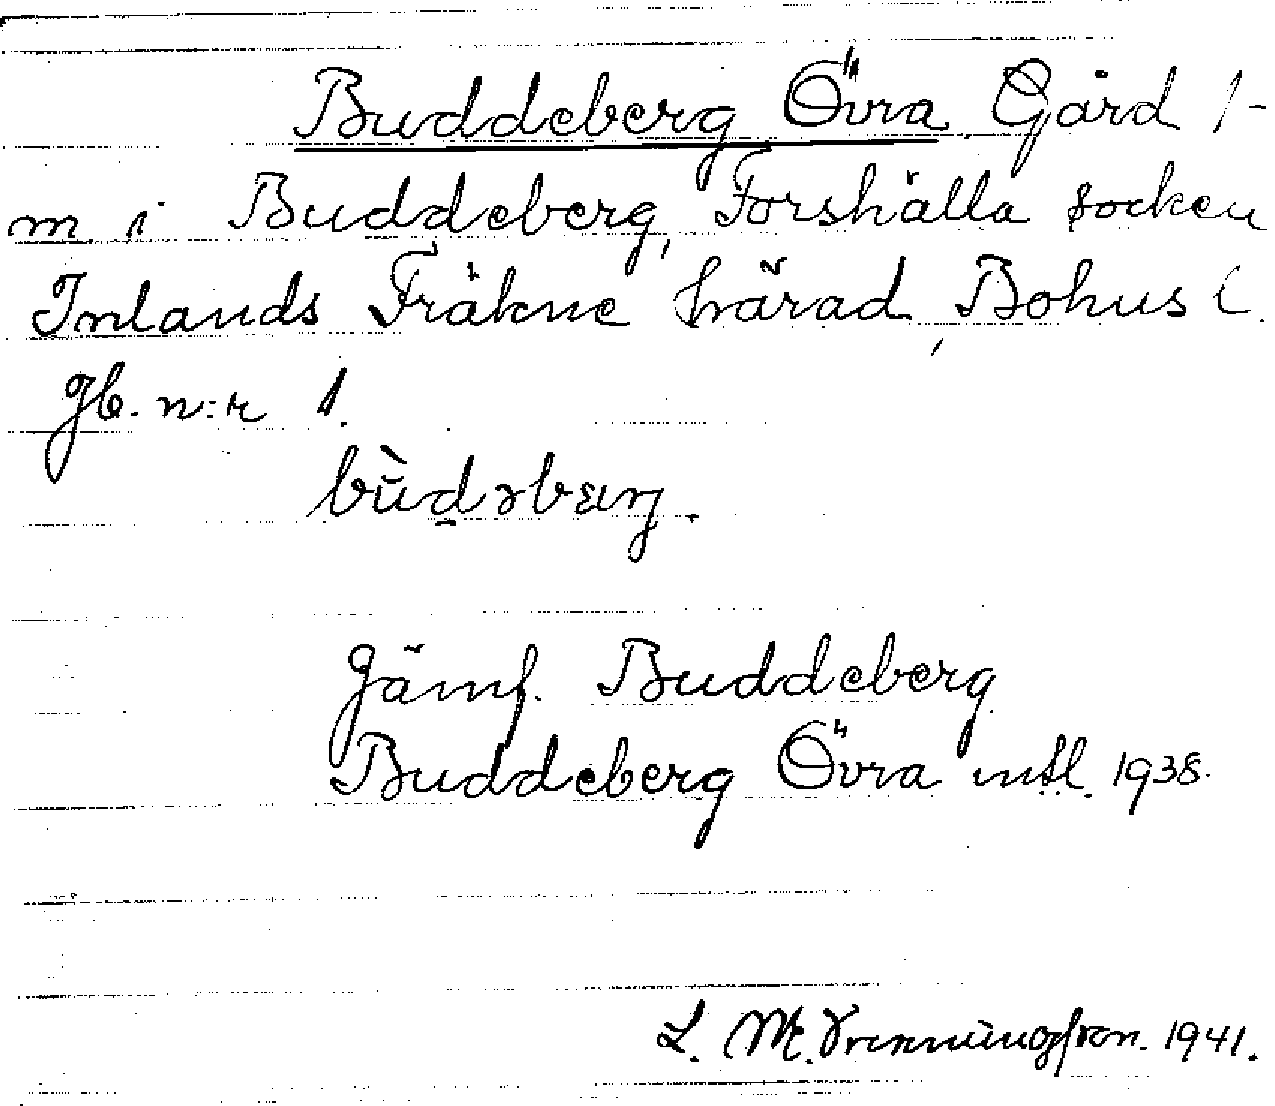 Buddeberg Övra Gård 1/-
m i Buddeberg, Forshälla socken
Inlands Fräkne härad, Bohus l.
Jb. n:r 1.
bùdəbærj.
Jämf. Buddeberg
Buddeberg Övra uttl. 1938.
L. M. 1941.